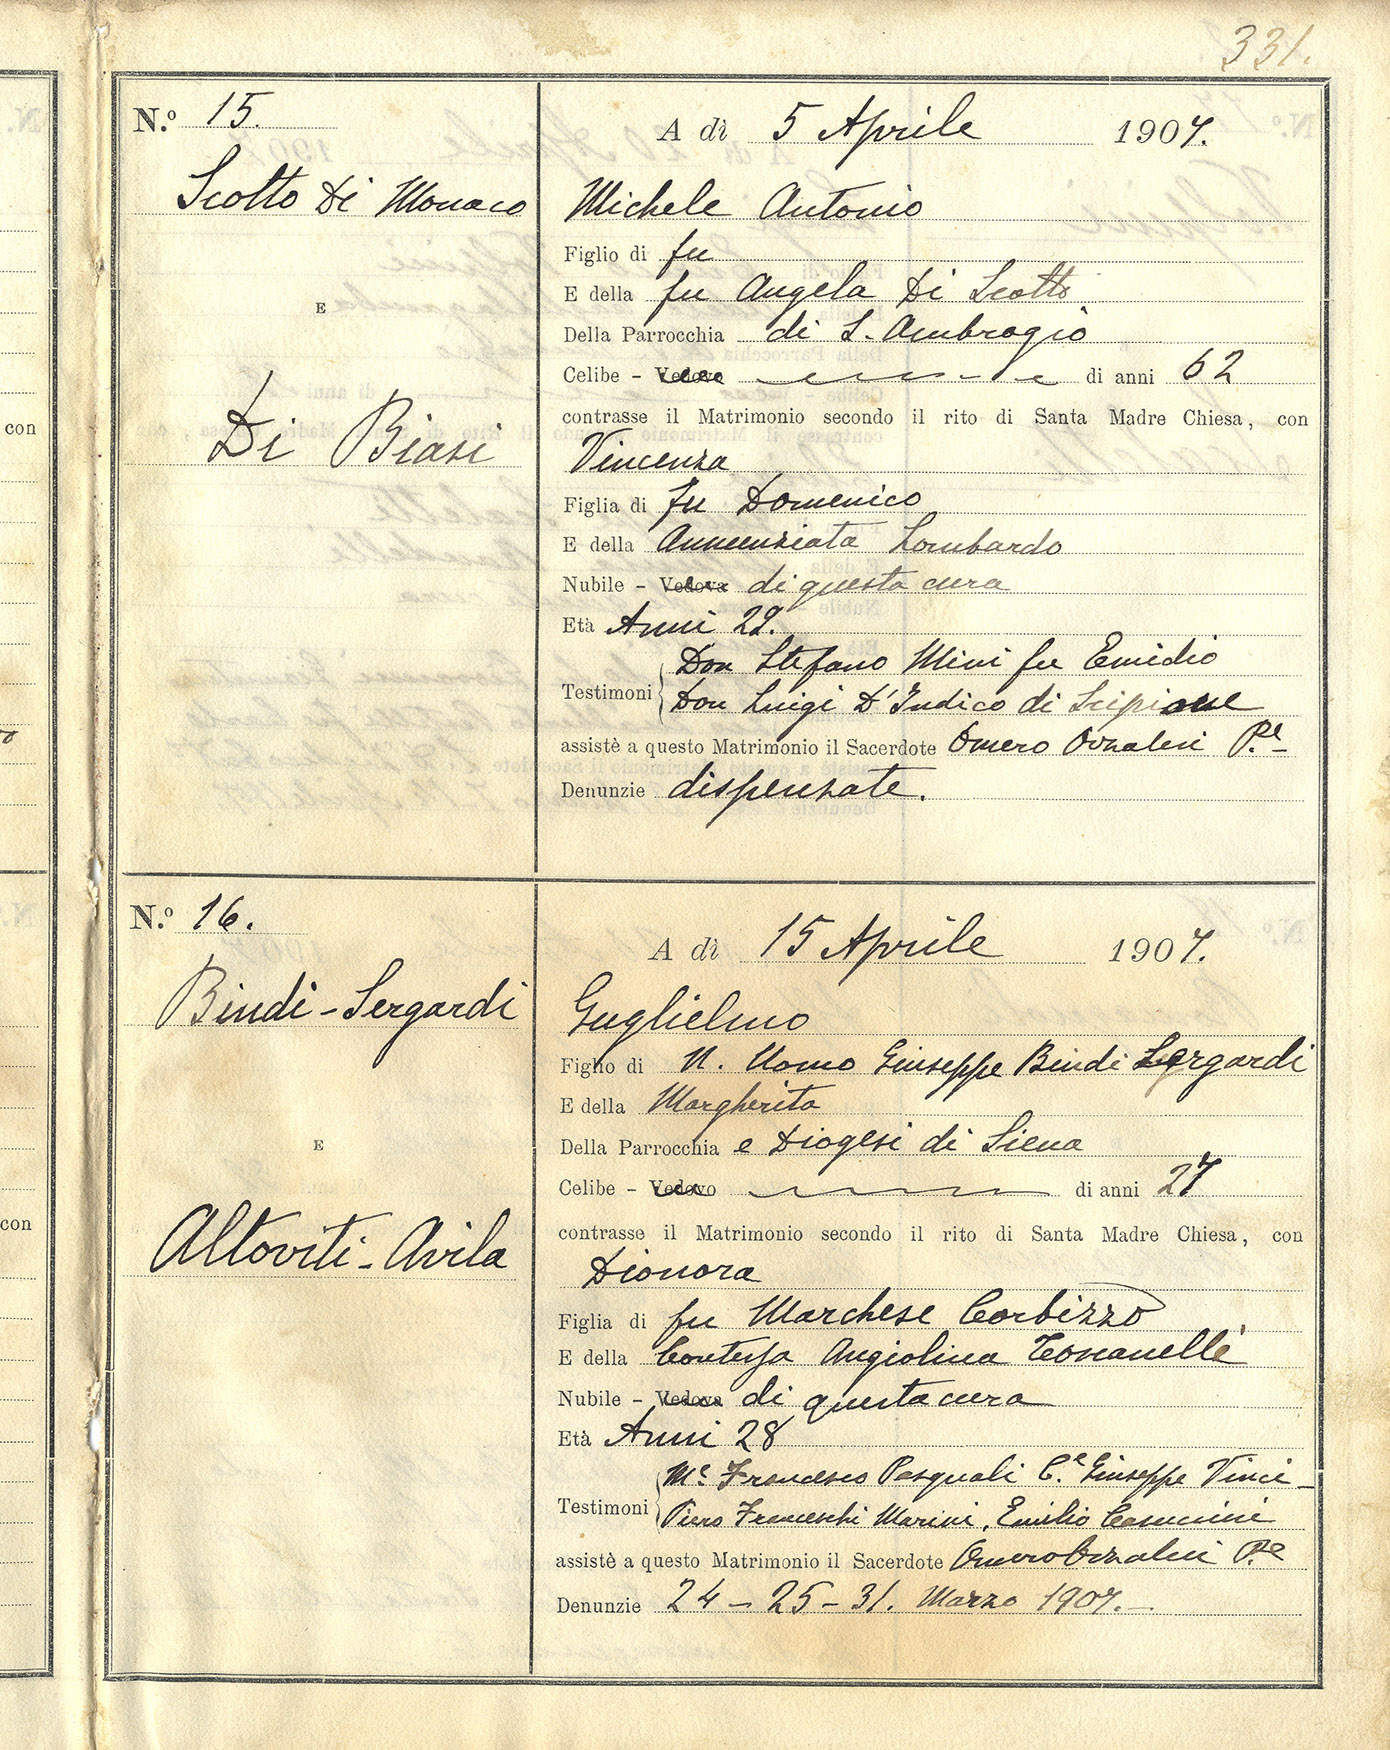 331.
N.º 15.
A dì 5 Aprile 1907.
Scotto Di Monaco
E
Di Biasi
Michele Antonio
Figlio di fu
E della fu Angela Di Scotto
Della Parrocchia di S. Ambrogio
Celibe - Vedovo di anni 62
contrasse il Matrimonio secondo il rito di Santa Madre Chiesa, con
Vincenza
Figlia di fu Domenico
E della Annunziata Lombardo
Nubile - Vedova di questa cura
Età Anni 22.
Testimoni Don Stefano Mini fu Emidio
Don Luigi D'Indico di Scipione
assistè a questo Matrimonio il Sacerdote Omero Orzalesi P.e
Denunzie dispensate.
N.º 16.
A dì 15 Aprile 1907.
Bindi-Sergardi
E
Altoviti-Avila
Guglielmo
Figlio di N. Uomo Giuseppe Bindi Sergardi
E della Margherita
Della Parrocchia e Diogesi di Siena
Celibe - Vedovo di anni 27
contrasse il Matrimonio secondo il rito di Santa Madre Chiesa, con
Dionora
Figlia di fu Marchese Corbizzo
E della Contessa Angiolina Toscanelli
Nubile - Vedova di questa cura
Età Anni 28
Testimoni M.e Francesco Pasquali C.e Giuseppe Vinci
Piero Franceschi Marini, Emilio
assistè a questo Matrimonio il Sacerdote Omero Orzalesi P.e
Denunzie 24 - 25 - 31. Marzo 1907.
con
con